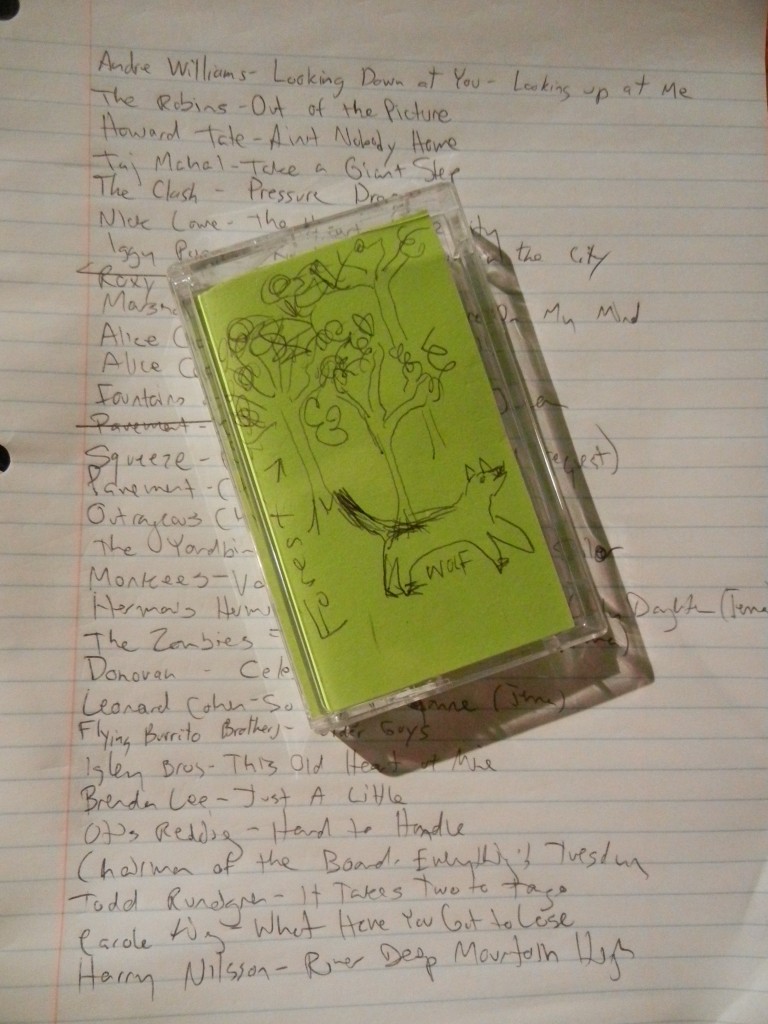 Andre Williams- Looking Down at You- Looking up at Me
The Robins -Out of the Picture
Howard Tate -Aint Nobody Home
Taj Mahal -Take a Giant Step
The Clash - Pressure Dro
Nick Lowe- The Heart
Iggy the City
Roxy
My Mind
Alice C
Alice Co
Fountains
Pavement -
Squeeze -
Pavement -C
Outrageous Ch
The Yardbir
Monkees-Va
Hermans Herm Daughter (Jenna
The Zombies
Donovan - Cele
Leonard Cohen-So (Jenna)
Flying Burrito Brothers- Guys
Isley Bros- This Old Heart of Mine
Brenda Lee - Just A Little
Otis Redding - Hard to Handle
Chairman of the Board- Everything's Tuesday
Todd Rundgren- It Takes Two to Tango
Carole King- What Have You Got to Lose
Harry Nilsson- River Deep Mountain High
Forest
WOLF